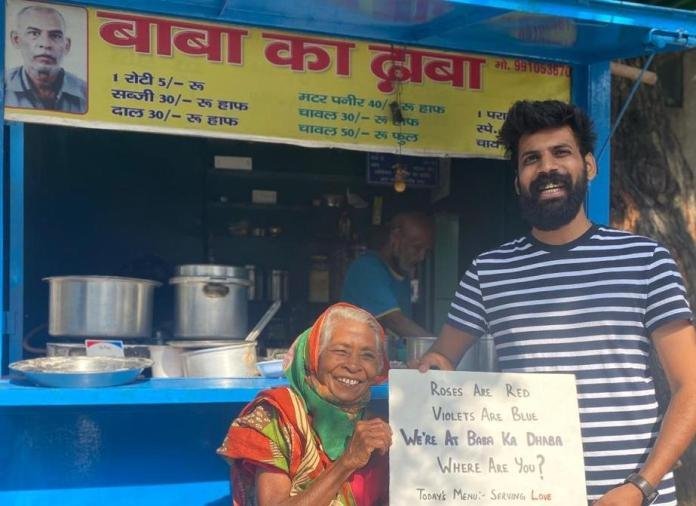 बाबा का ढ़ाबा
मो. 991053670
1 रोटी 5/– रू
सब्जी 30/– रू हाफ
दाल 30/– रू हाफ
मटर पनीर 40/– रू हाफ
चावल 30/– रू हाफ
चावल 50/– रू फुल
1
Roses Are Red
Violets Are Blue
We're At Baba Ka Dhaba
Where Are You?
Today's Menu:- Serving Love